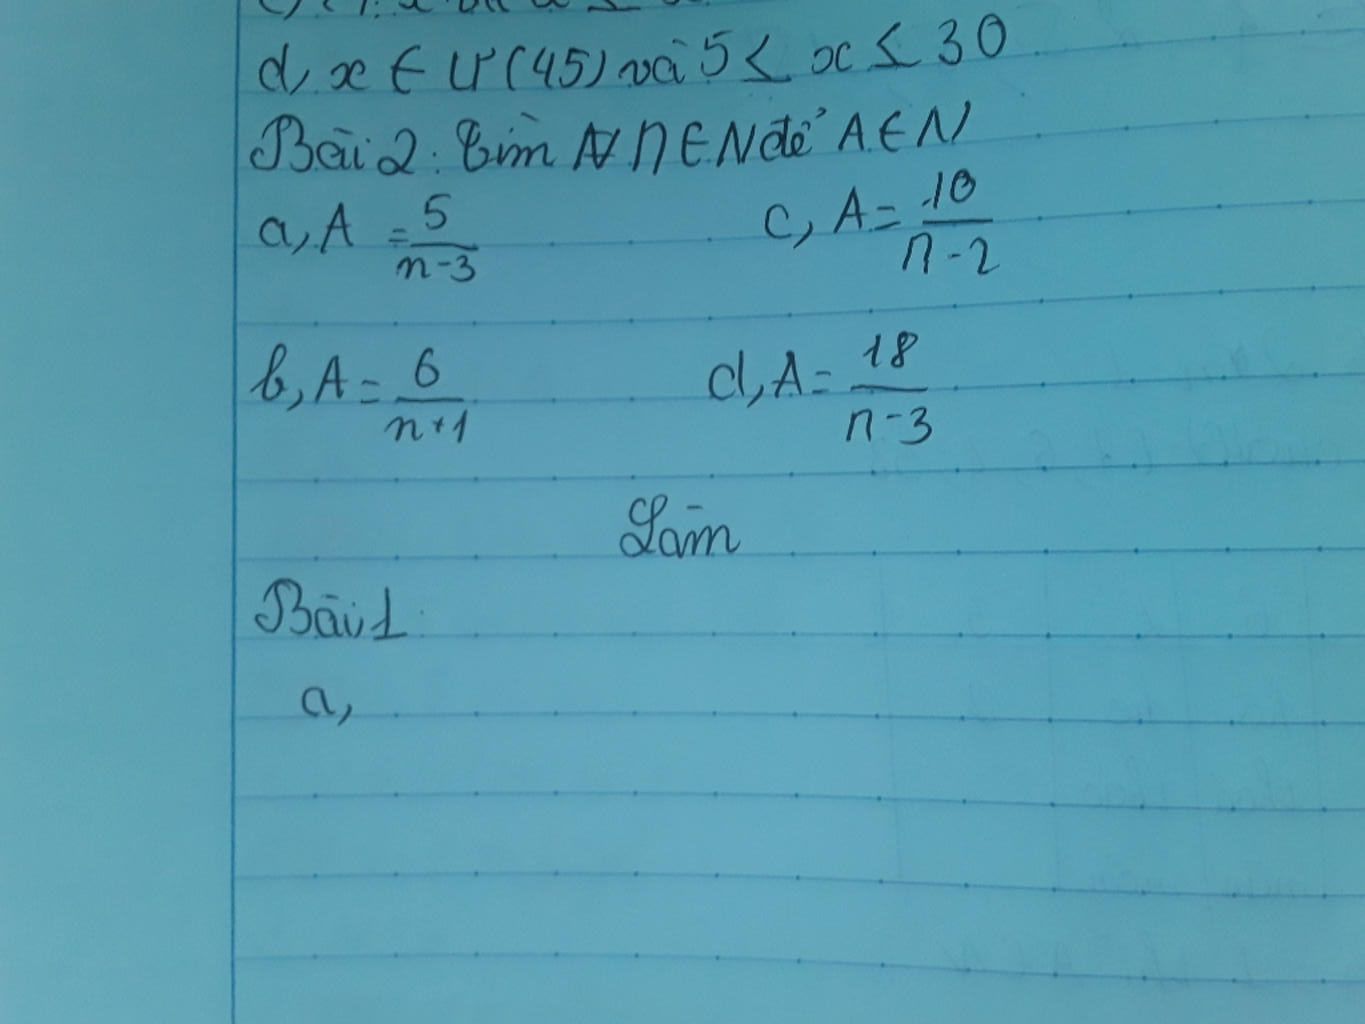 d, x ∈ Ư(45) và 5 ≤ x ≤ 30
Bài 2: Tìm n ∈ N để A ∈ N
a, A = 5/(n-3)
c, A = 10/(n-2)
b, A = 6/(n+1)
d, A = 18/(n-3)
Làm
Bài 1
a,